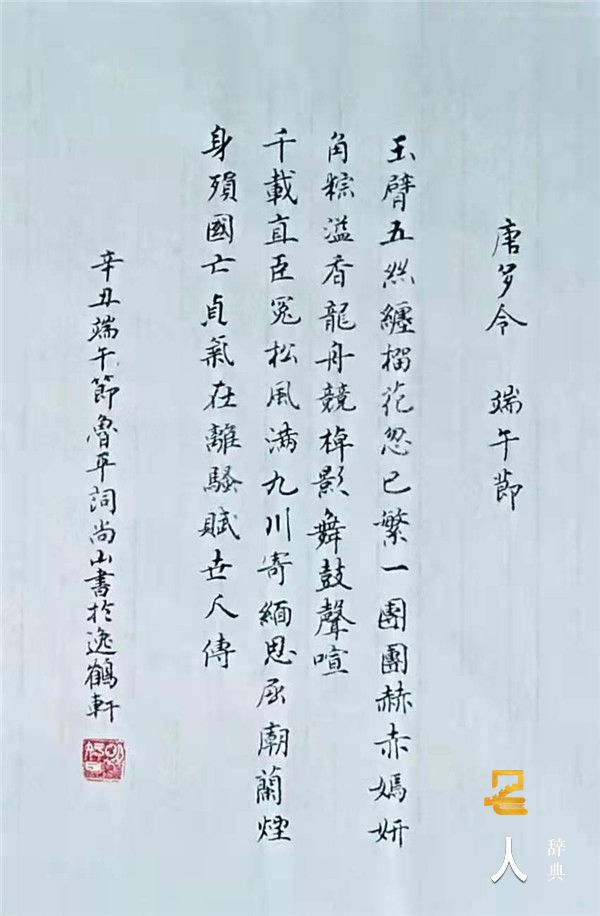 唐多令 端午節
玉臂五絲纏榴花忽已繁一團團赫赤嫣妍
角粽溢香龍舟競棹影舞鼓聲喧
千載直臣冤松風满九川寄緬思屈廟蘭煙
身殞國亡貞氣在離騷賦世人傳
辛丑端午節魯平詞尚山書於逸鶴軒
名人
辞典